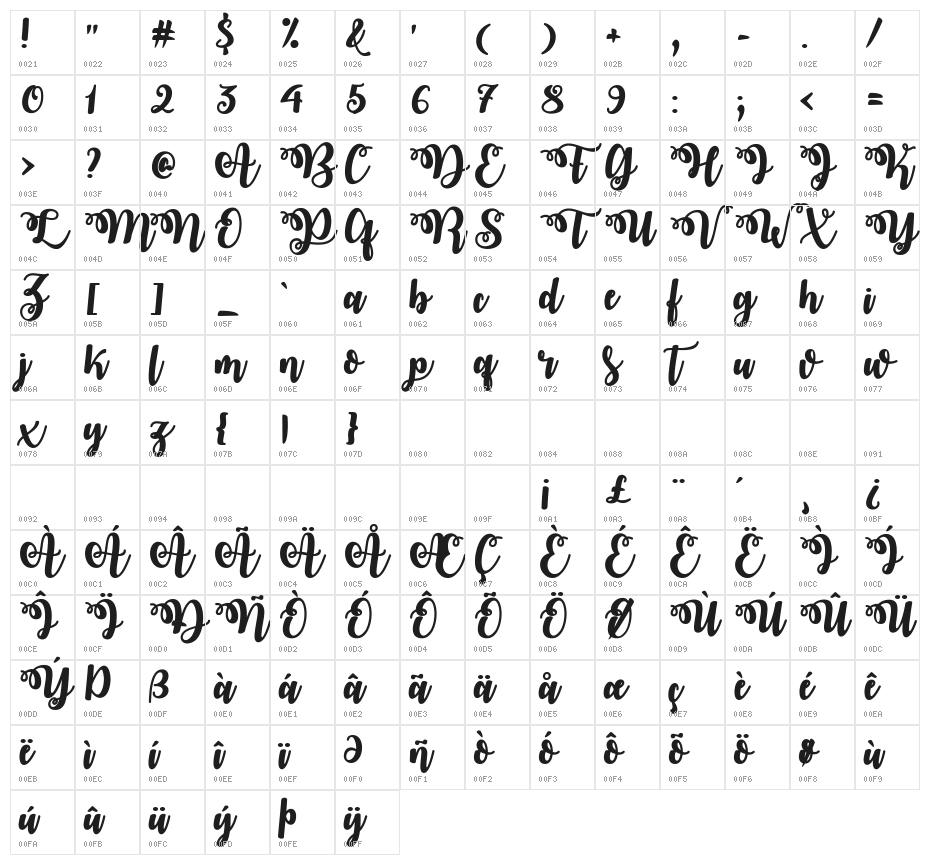 ! " # $ % & ' ( ) + , - . /
0021 0022 0023 0024 0025 0026 0027 0028 0029 002B 002C 002D 002E 002F
0 1 2 3 4 5 6 7 8 9 : ; < =
0030 0031 0032 0033 0034 0035 0036 0037 0038 0039 003A 003B 003C 003D
> ? @ A B C D E F G H I J K
003E 003F 0040 0041 0042 0043 0044 0045 0046 0047 0048 0049 004A 004B
L M N O P Q R S T U V W X Y
004C 004D 004E 004F 0050 0051 0052 0053 0054 0055 0056 0057 0058 0059
Z [ ] _ ` a b c d e f g h i
005A 005B 005D 005F 0060 0061 0062 0063 0064 0065 0066 0067 0068 0069
j k l m n o p q r s t u v w
006A 006B 006C 006D 006E 006F 0070 0071 0072 0073 0074 0075 0076 0077
x y z { | }
0078 0079 007A 007B 007C 007D 0080 0082 0084 0088 008A 008C 008E 0091
¡ £ ¨ ´ ¸ ¿
0092 0093 0094 0098 009A 009C 009E 009F 00A1 00A3 00A8 00B4 00B8 00BF
À Á Â Ã Ä Å Æ Ç È É Ê Ë Ì Í
00C0 00C1 00C2 00C3 00C4 00C5 00C6 00C7 00C8 00C9 00CA 00CB 00CC 00CD
Î Ï Ð Ñ Ò Ó Ô Õ Ö Ø Ù Ú Û Ü
00CE 00CF 00D0 00D1 00D2 00D3 00D4 00D5 00D6 00D8 00D9 00DA 00DB 00DC
Ý Þ ß à á â ã ä å æ ç è é ê
00DD 00DE 00DF 00E0 00E1 00E2 00E3 00E4 00E5 00E6 00E7 00E8 00E9 00EA
ë ì í î ï ð ñ ò ó ô õ ö ø ù
00EB 00EC 00ED 00EE 00EF 00F0 00F1 00F2 00F3 00F4 00F5 00F6 00F8 00F9
ú û ü ý þ ÿ
00FA 00FB 00FC 00FD 00FE 00FF